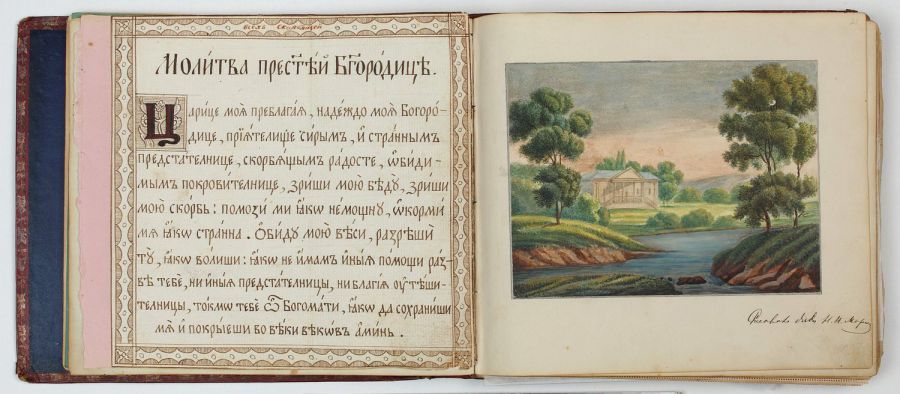 всѣмъ скорбящей
Моли́тва прест҃ѣ́й Бг҃оро́дицѣ.
Цари́це моѧ̀ преблага́ѧ, наде́ждо моѧ̀ Богоро́-
дице, прїѧ́телище си́рымъ, и҆ стра́ннымъ
предста́телнице, скорбѧ́щымъ ра́досте, ѡ҆би́ди-
мымъ покрови́телнице, зри́ши мою̀ бѣдꙋ̀, зри́ши
мою̀ ско́рбь: помози́ ми ꙗ҆́кѡ не́мощнꙋ, ѡ҆корми́
мѧ ꙗ҆́кѡ стра́нна. Ѻ҆би́дꙋ мою̀ вѣ́си, разрѣшѝ
тꙋ̀, ꙗ҆́кѡ во́лиши: ꙗ҆́кѡ не и҆́мамъ и҆ны́ѧ по́мощи ра́з-
вѣ тебє̀, ни и҆ны́ѧ предста́телницы, ни благі́ѧ ᲂу҆тѣ́ши-
телницы, то́кмѡ тебѐ ѽ Богома́ти, ꙗ҆́кѡ да сохрани́ши
мѧ̀ и҆ покры́еши во вѣ́ки вѣкѡ́въ а҆ми́нь.